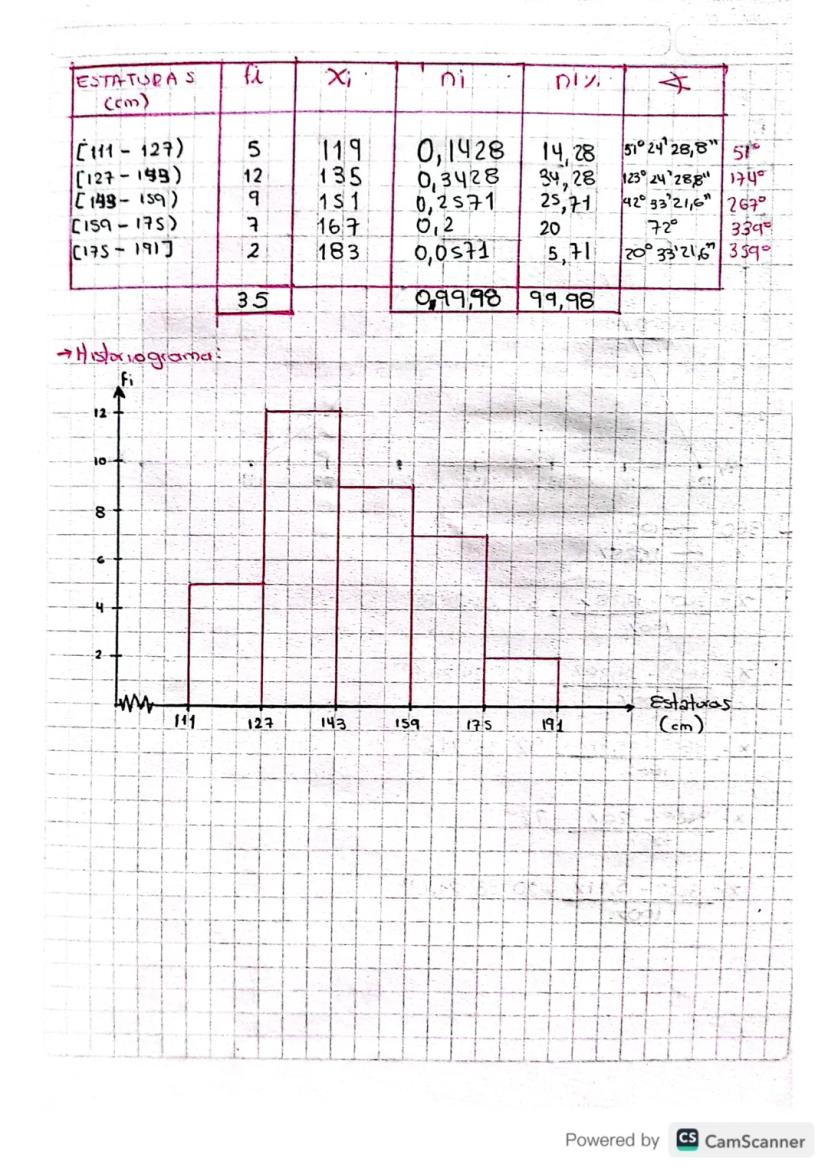 ESTATURAS (cm) fi Xi ni ni% ∢
[111 - 127) 5 119 0,1428 14,28 51° 24' 28,8" 51°
[127 - 143) 12 135 0,3428 34,28 123° 24' 28,8" 174°
[143 - 159) 9 151 0,2571 25,71 42° 33' 21,6" 267°
[159 - 175) 7 167 0,2 20 72° 339°
[175 - 191] 2 183 0,0571 5,71 20° 33' 21,6" 359°
35 0,99,98 99,98
→ Historiograma:
fi
12
10
8
6
4
2
111 127 143 159 175 191
Estaturas
(cm)
Powered by CS CamScanner